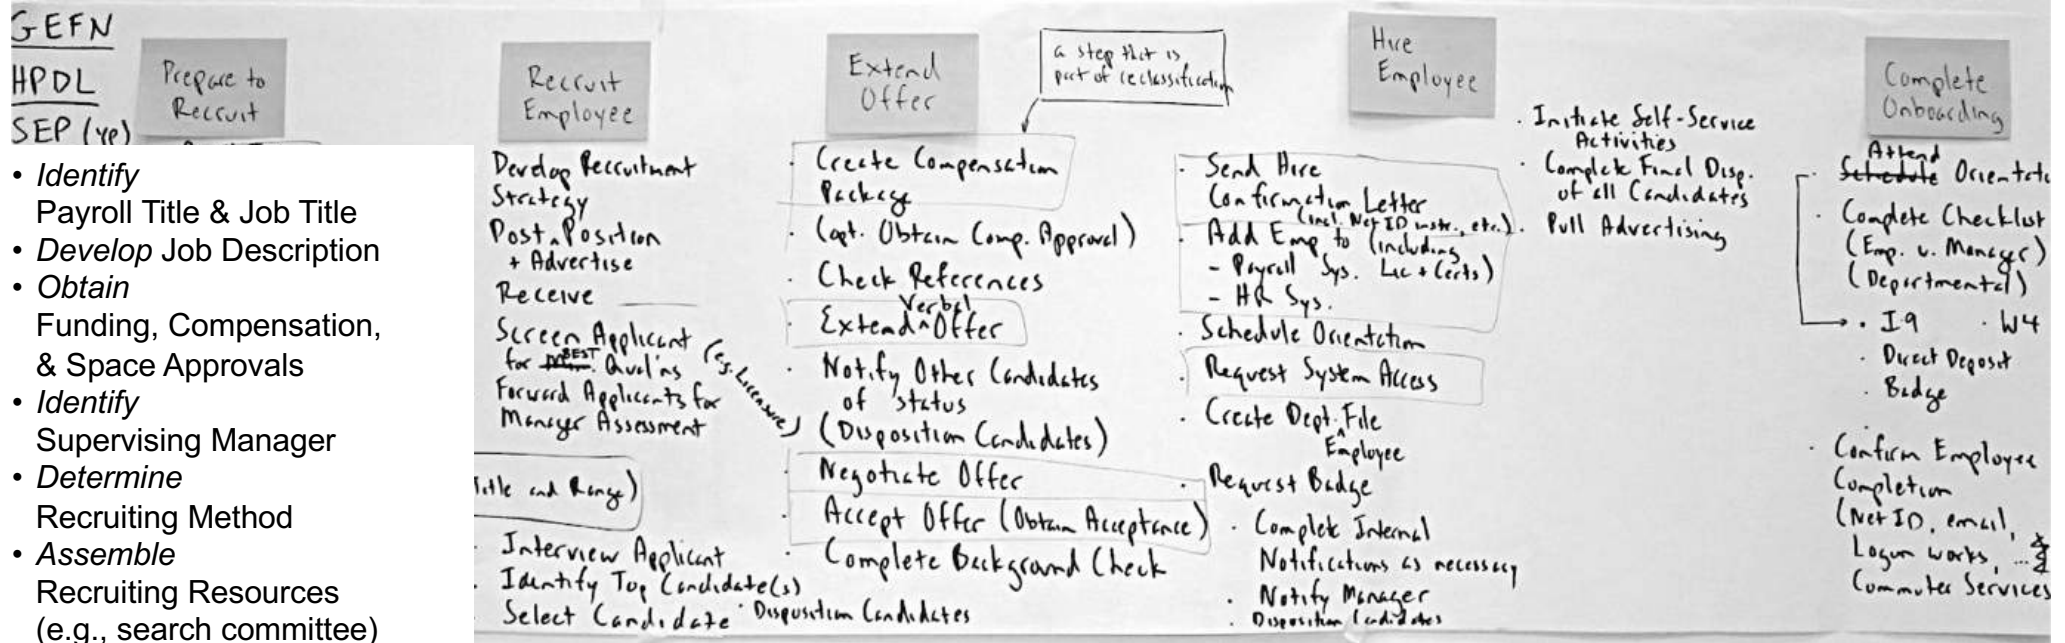 GEFN
HPDL
SEP
Prepare to
Recruit
• Identify
Payroll Title & Job Title
• Develop Job Description
• Obtain
Funding, Compensation,
& Space Approvals
• Identify
Supervising Manager
• Determine
Recruiting Method
• Assemble
Recruiting Resources
(e.g., search committee)
Recruit
Employee
Develop Recruitment
Strategy
Post Position
+ Advertise
Receive
Screen Applicant
for BEST Qual'ns
(e.g. Licensure)
Forward Applicants for
Manager Assessment
Title and Range)
· Interview Applicant
· Identify Top Candidate(s)
· Select Candidate · Disposition Candidates
Extend
Offer
a step that is
part of reclassification
· Create Compensation
Package
· (opt. Obtain Comp. Approval)
· Check References
Verbal
· Extend ^ Offer
· Notify Other Candidates
of status
(Disposition Candidates)
· Negotiate Offer
· Accept Offer (Obtain Acceptance)
· Complete Background Check
Hire
Employee
· Send Hire
Confirmation Letter
(incl. Net ID instr., etc.)
· Add Emp to (including
- Payroll Sys. Lic + Certs)
- HR Sys.
· Schedule Orientation
· Request System Access
· Create Dept. File
^ Employee
· Request Badge
· Complete Internal
Notifications as necessary
· Notify Manager
· Disposition Candidates
· Initiate Self-Service
Activities
· Complete Final Disp.
of all Candidates
· Pull Advertising
Complete
Onboarding
Attend
· Schedule Orientatio
· Complete Checklist
(Emp. v. Manager)
(Departmental)
· I9 · W4
· Direct Deposit
· Badge
· Confirm Employee
Completion
(Net ID, email,
Logon works, ...
Commuter Services